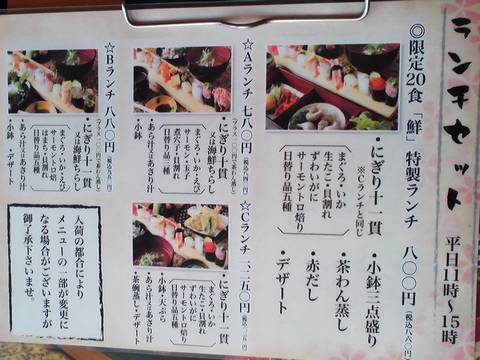 ランチセット 平日11時～15時
◎限定20食「鮮」特製ランチ 八〇〇円
・にぎり十一貫
※Cランチと同じ
まぐろ・いか
生たこ・貝割れ
ずわいがに
サーモントロ焙り
日替り品五種
・小鉢三点盛り
・茶わん蒸し
・赤だし
・デザート
☆Aランチ 七八〇円
・にぎり十一貫
又は海鮮ちらし
まぐろ・いか・えび
サーモン・玉子
煮穴子・貝割れ
日替り品五種
・あら汁又はあさり汁
・小鉢
☆Bランチ 八八〇円
・にぎり十一貫
又は海鮮ちらし
まぐろ・いか・えび
サーモントロ焙り
はまち・貝割れ
日替り品五種
・あら汁又はあさり汁
・小鉢・デザート
☆Cランチ 一、二五〇円
・にぎり十一貫
まぐろ・いか
生たこ・貝割れ
ずわいがに
サーモントロ焙り
日替り品五種
・小鉢・天ぷら
・あら汁又はあさり汁
・茶碗蒸し・デザート
入荷の都合により
メニューの一部が変更に
なる場合がございますが
御了承下さいませ。